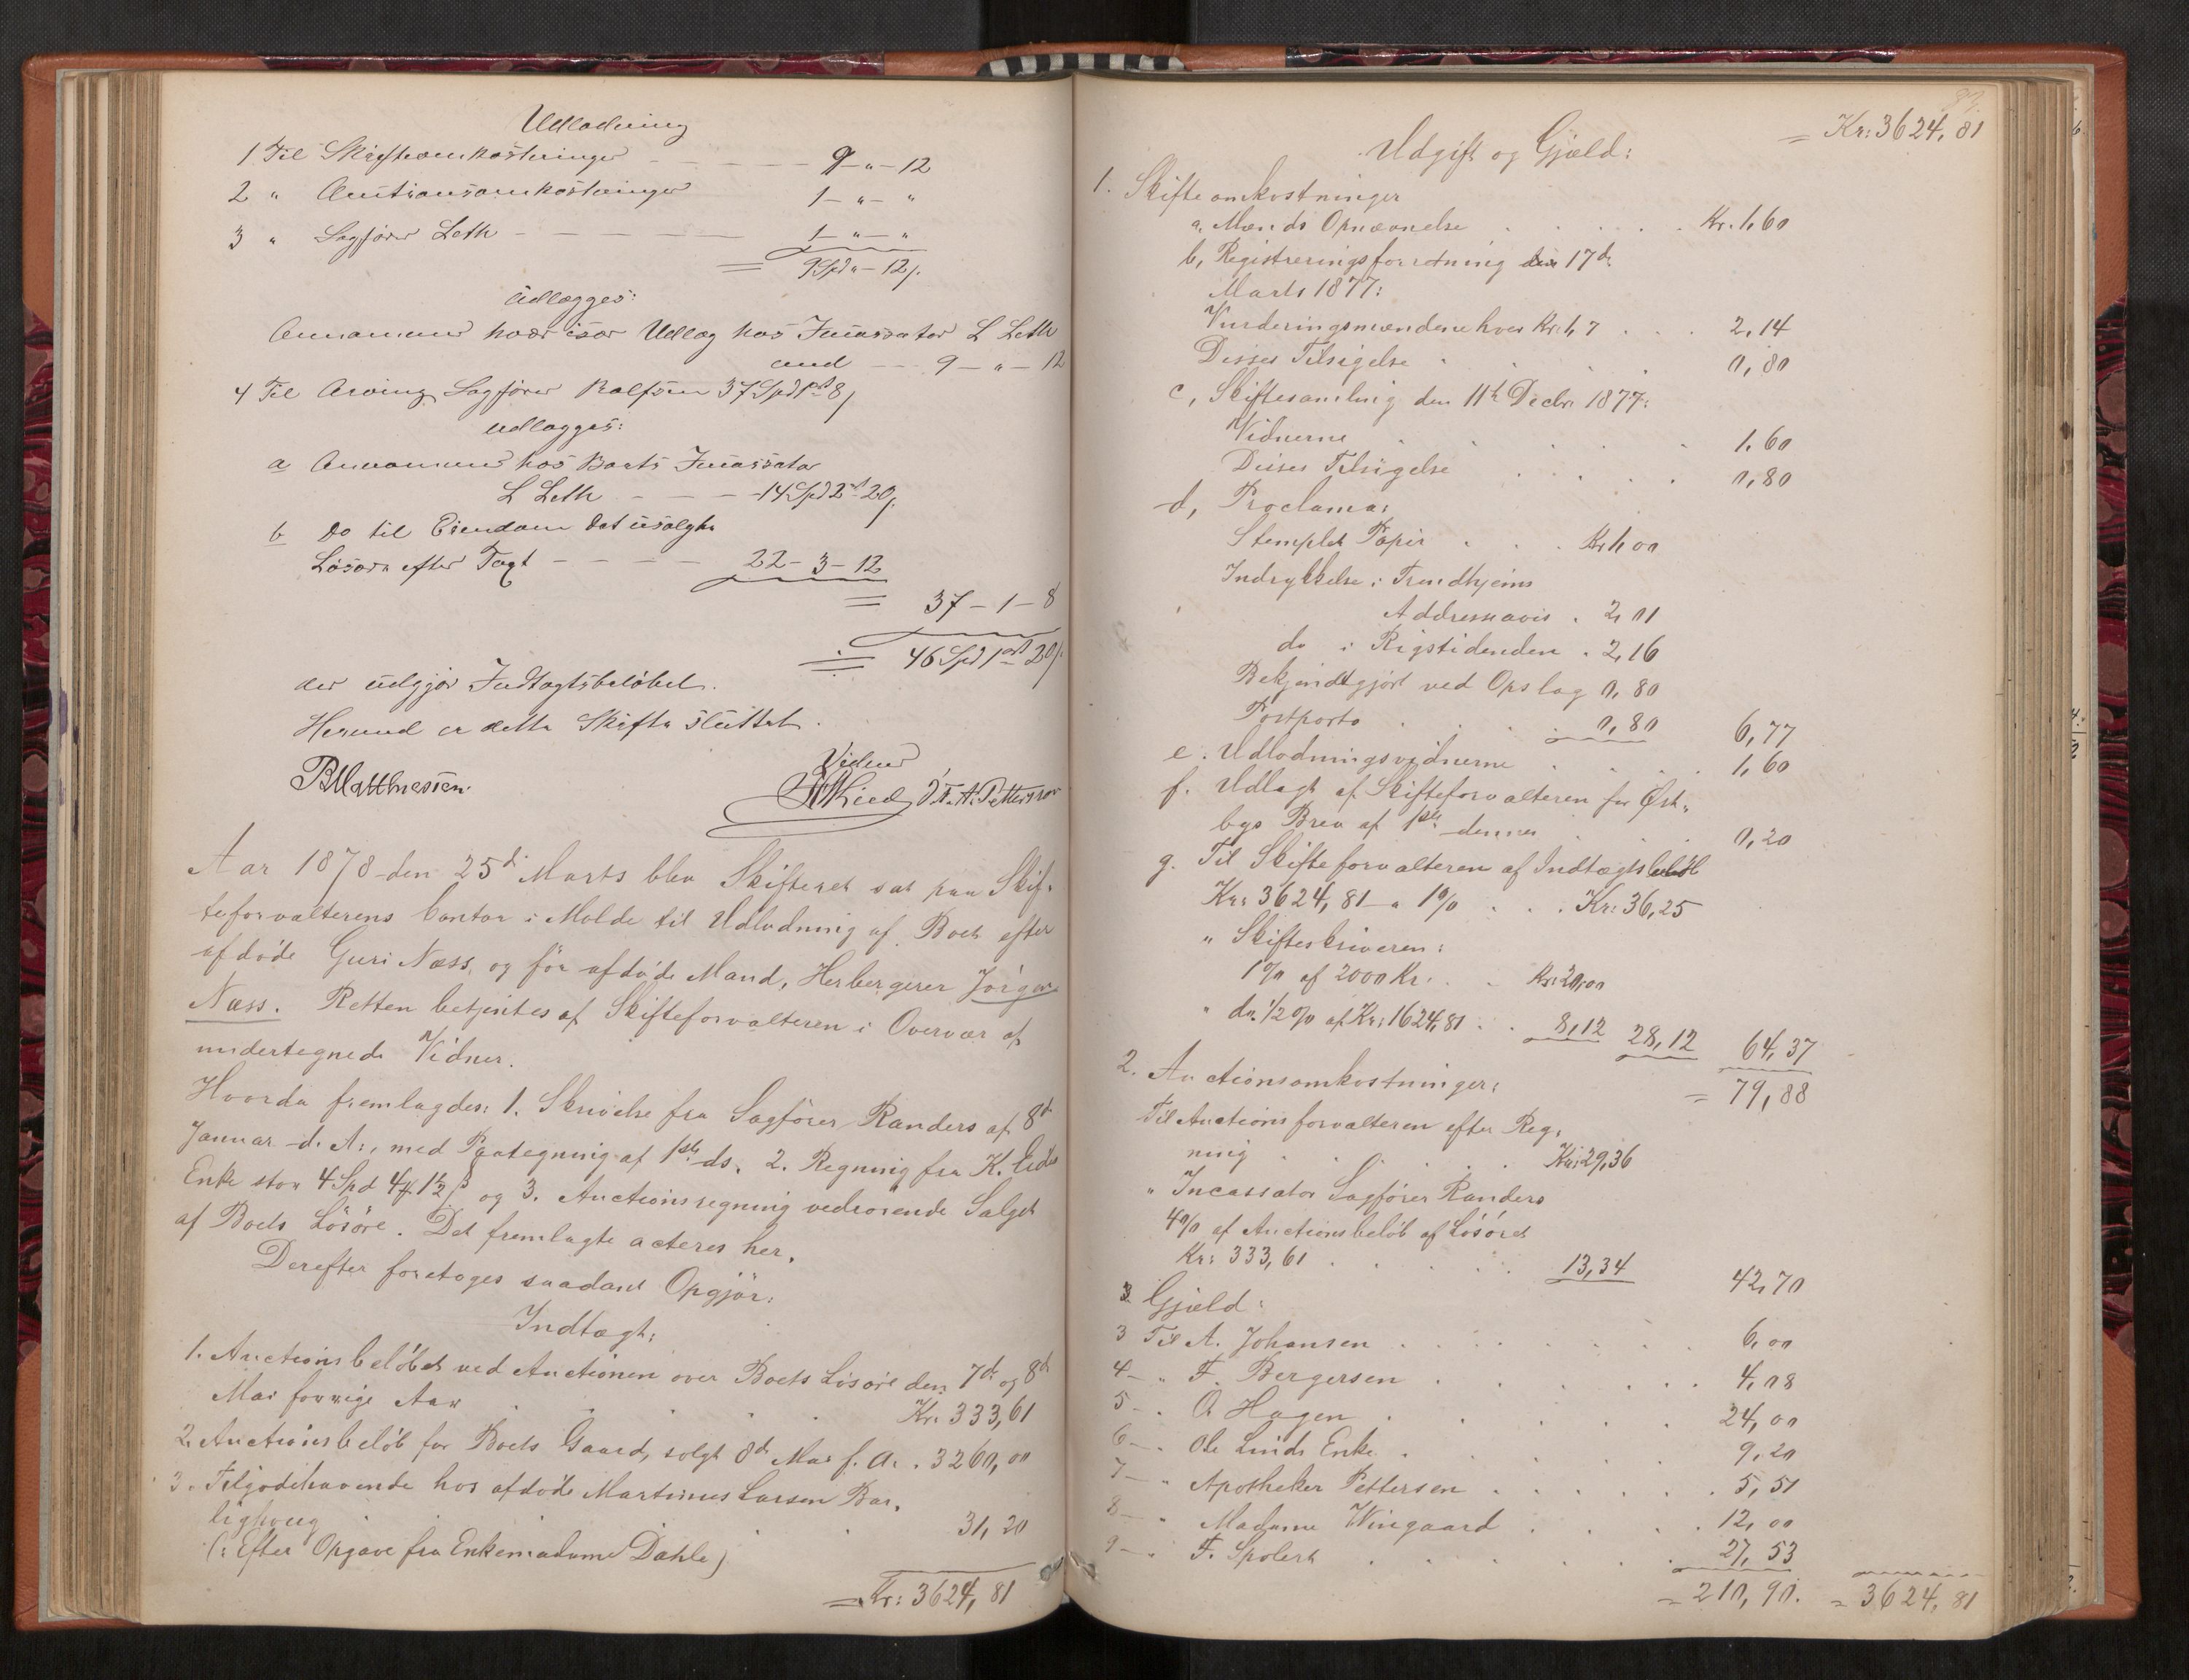 Udlodning
1 Til Skifteomkostninger — — — 9 - " - 12
2 " Auctionsomkostninger 1 - " - "
3 " Sagfører Leth — — — 1 - " - "
= 9 Spd " - 12 s.
Udlægges:
Annammer hver især Udlæg hos Incassator L Leth
med — 9 - " - 12
4 Til Arving Sagfører Rolfsen 37 Spd 1 ort 8 s
udlægges:
a Annammer hos Boets Incassator
L Leth — — — 14 Spd 2 ort 20 s.
b Do til Eiendom det usolgte
Løsøre efter Taxt — — — 22 - 3 - 12
= 37 - 1 - 8
= 46 Spd 1 ort 20 s.
der udgjør Indtægtsbeløbet.
Hermed er dette Skifte sluttet.
Vidner
BMatthiessen.
A. Pettersson
Aar 1878 den 25de Marts blev Skifteret sat paa Skif-
teforvalterens Contor i Molde til Udlodning af Boet efter
afdøde Guri Næss, og før afdøde Mand, Herbergerer Jørgen
Næss. Retten betjentes af Skifteforvalteren i Overvær af
undertegnede Vidner.
Hvorda fremlagdes: 1. Skrivelse fra Sagfører Randers af 8de
Januar d. A., med Paategning af 1ste ds. 2. Regning fra K. Lids
Enke stor 4 Spd 4 # 1½ s og 3. Auctionsregning vedrørende Salget
af Boets Løsøre. Det fremlagte acteres her.
Derefter foretoges saadant Opgjør:
Indtægt:
1. Auctionsbeløbet ved Auctionen over Boets Løsøre den 7de og 8de
Mai forrige Aar . . . . Kr. 333,61
2. Auctionsbeløb for Boets Gaard, solgt 8de Mai f. A. . 3260,00
3. Tilgodehavende hos afdøde Martinus Larsen Bar-
lighoug . . . . 31,20
(: Efter Opgave fra Enkemadame Dahle)
= Kr: 3624,81
= Kr: 3624,81
Udgift og Gjæld:
1. Skifteomkostninger
a, Mænds Opnævnelse . . . . Kr. 1,60
b, Registreringsforretning den 17de
Marts 1877:
Vurderingsmændene hver Kr. 1,7 . . . 2,14
Disses Tilsigelse . . . 0,80
c, Skiftesamling den 11te Decbr. 1877:
Vidnerne . . . . 1,60
Disses Tilsigelse . . . . 0,80
d, Proclama:
Stemplet Papir . . . Kr 1,00
Indrykkelse i Trondhjems
Addresseavis . 2,01
do i Rigstidenden . 2,16
Bekjendtgjort ved Opslag 0,80
Postporto . . . 0,80 6,77
e. Udlodningsvidnerne . . . . 1,60
f. Udlagt af Skifteforvalteren for Øst-
bys Brev af 1ste dennes . . . 0,20
g. Til Skifteforvalteren af Indtægtsbeløb
Kr: 3624,81 a 1% . . . Kr: 36,25
" Skifteskriveren:
1% af 2000 Kr. . . Kr: 20,00
" do ½% af Kr: 1624,81 . . 8,12 28,12 64,37
= 79,88
2. Auctionsomkostninger:
Til Auctionsforvalteren efter Reg-
ning . . . . . Kr: 29,36
" Incassator Sagfører Randers
4% af Auctionsbeløb af Løsøret
Kr: 333,61 . . . . . 13,34 42,70
3 Gjæld:
3 Til A. Johansen . . . . . . 6,00
4 - " F. Bergersen . . . . . . 4,08
5 - " O Hagen . . . . . . 24,00
6 - " Ole Linds Enke . . . . . 9,20
7 - " Apotheker Pettersen . . . . . . 5,51
8 - " Madame Wingaard . . . . 12,00
9 - " F. Spolert . . . . . . 27,53
= 210,90. = 3624,81